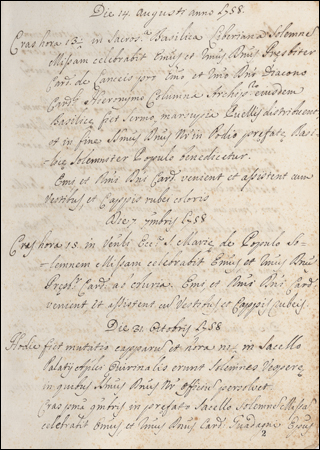 Die 14. Augusti anno 1758.
Cras hora 13.ª in Sacros.ª Basilica Liberiana Solemnem
Missam celebrabit Emus et Rmus Dnus Presbiter
Card. de Canciis pro Emo et Rmo Dno Diacono
Card. Hieronymo Columna Archip.ro eiusdem
Basilicæ fiet Sermo, Puellis distribuent,
et in fine Smus Dnus Nr in Podio prefatæ Basi-
licæ Solemniter Populo benedicetur.
Emi et Rmi Dni Card. venient et assistent cum
Vestibus et Cappis rubei coloris
Die 7. 7mbris 1758
Cras hora 15. in Ven. Ecc. S. Mariæ de Populo So-
lemnem Missam celebrabit Emus et Rmus Dnus
Presb. Card. Emi et Rmi Dni Card.
venient et assistent cum Vestibus et Cappis rubeis
Die 31. Octobris 1758
Hodie fiet mutatio capparum et hora in Sacello
Palatij Quirinalis erunt Solemnes Vesperæ,
in quibus Smus Dnus Nr Officium persolvet.
Cras prima 9mbris in prefato Sacello Solemnem Missam
celebrabit Emus et Rmus Dnus Card. Guadagni Epus